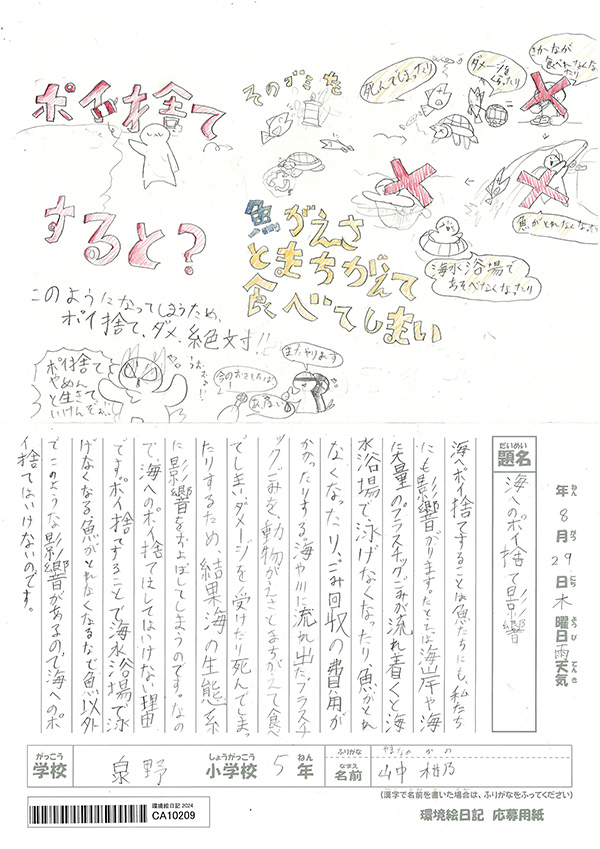 ポイ捨て
すると?
このようたなってしまうため、
ポイ捨て、ダメ、絶対!!
そのごみを
魚がえさ
とまちがえて
食べてしまい
死んでしまったり
ダメージを
くらったり
さかなが
食べれなくなっ
たり
魚がとれなくなったり
海水浴場で
あそべなくなったり
ポイ捨て
やめんと
生きて
いけんぞぉ、
またやります
だいめい
題名
海へのポイ捨て影響
年 8月29日 木曜日 雨天気
ねん がつ にち ようび てんき
海へポイ捨てすることは魚たちにも、私たち
にも影響がります。たとえば海岸や海
に大量のプラスチックごみが流れ着くと海
水浴場で泳げなくなったり、魚がとれ
なくなったり、ごみ回収の費用が
かかったりする。海や川に流れ出たプラスチ
ックごみを動物がえさとまちがえて食べ
てしまいダメージを受けたり死んでしまっ
たりするため、結果海の生態系
に影響をおよぼしてしまうのです。なの
で、海へのポイ捨てはしてはいけない理由
です。ポイ捨てすることで海水浴場で泳
げなくなる魚がとれなくなるなで魚以外
でこのような影響があるので海へのポ
イ捨てはいけないのです。
がっこう しょうがっこう ねん
学校 泉野 小学校 5年
ふりがな やまなか かの
なまえ
名前 山中
(漢字で名前を書いた場合は、ふりがなをふってください)
環境絵日記2024
CA10209
環境絵日記 応募用紙